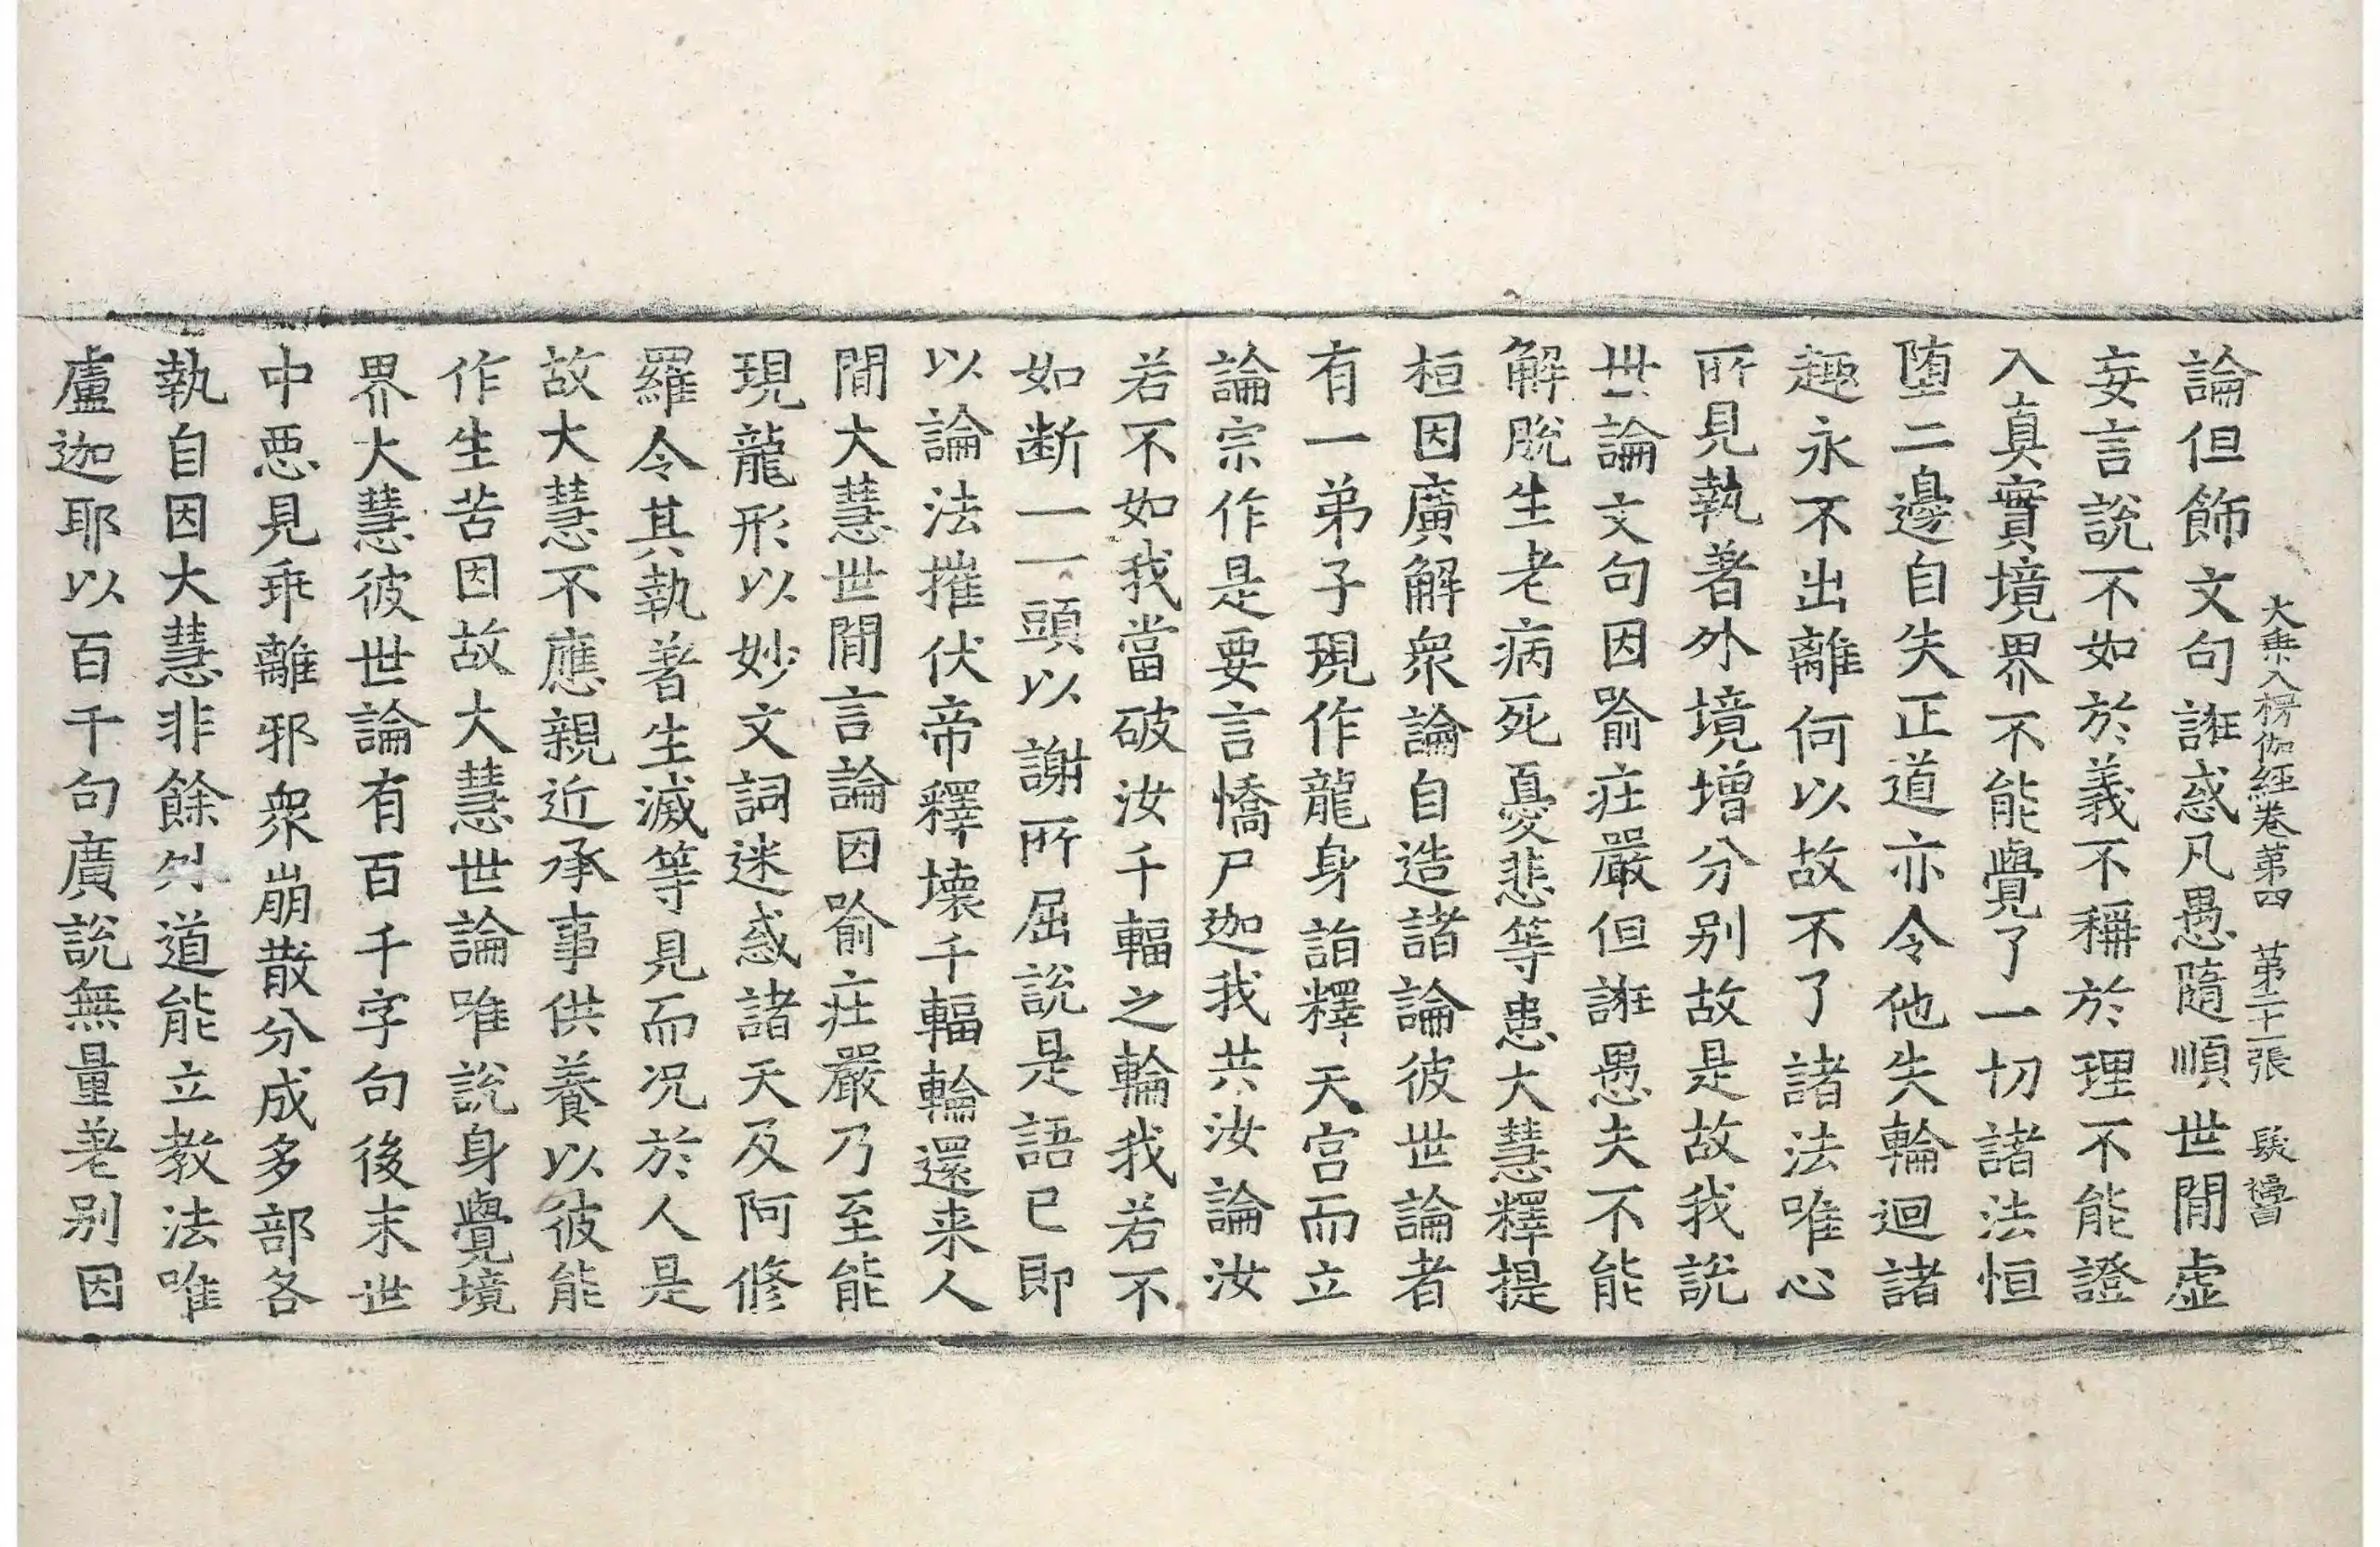 大乘入楞伽經卷第四　第二十一張　髮字号
論但飾文句誑惑凡愚隨順世間虛
妄言說不如於義不稱於理不能證
入真實境界不能覺了一切諸法恒
墮二邊自失正道亦令他失輪迴諸
趣永不出離何以故不了諸法唯心
所見執著外境增分別故是故我說
世論文句因喻莊嚴但誑愚夫不能
解脫生老病死憂悲等患大慧釋提
桓因廣解衆論自造諸論彼世論者
有一弟子現作龍身詣釋天宮而立
論宗作是要言憍尸迦我共汝論汝
若不如我當破汝千輻之輪我若不
如斷一一頭以謝所屈說是語已即
以論法摧伏帝釋壞千輻輪還来人
間大慧世間言論因喻莊嚴乃至能
現龍形以妙文詞迷惑諸天及阿修
羅令其執著生滅等見而況於人是
故大慧不應親近承事供養以彼能
作生苦因故大慧世論唯說身覺境
界大慧彼世論有百千字句後末世
中惡見乖離邪衆崩散分成多部各
執自因大慧非餘外道能立教法唯
盧迦耶以百千句廣說無量差別因